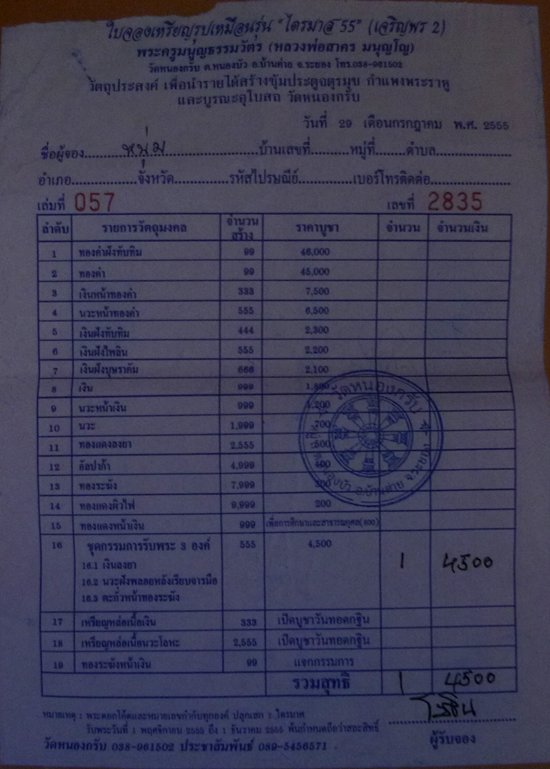 ใบจองเหรียญรูปเหมือนรุ่น "ไตรมาส 55" (เจริญพร 2)
พระครูมนูญธรรมวัตร (หลวงพ่อสาคร มนุญโญ)
วัดหนองกรับ ต.หนองบัว อ.บ้านค่าย จ.ระยอง โทร.038-961502
วัตถุประสงค์ เพื่อนำรายได้สร้างซุ้มประตูจตุรมุข กำแพงพระราหู
และบูรณะอุโบสถ วัดหนองกรับ
วันที่ 29 เดือนกรกฎาคม พ.ศ. 2555
ชื่อผู้จอง หนุ่ม บ้านเลขที่ หมู่ที่ ตำบล
อำเภอ จังหวัด รหัสไปรษณีย์ เบอร์โทรติดต่อ
เล่มที่ 057 เลขที่ 2835
ลำดับ รายการวัตถุมงคล จำนวนสร้าง ราคาบูชา จำนวน จำนวนเงิน
1 ทองคำฝังทับทิม 99 46,000
2 ทองคำ 99 45,000
3 เงินหน้าทองคำ 333 7,500
4 นวะหน้าทองคำ 555 6,500
5 เงินฝังทับทิม 444 2,300
6 เงินฝังไพลิน 555 2,200
7 เงินฝังบุษราคัม 666 2,100
8 เงิน 999
9 นวะหน้าเงิน 999 1,200
10 นวะ 1,999 700
11 ทองแดงลงยา 2,555 500
12 อัลปาก้า 4,999 400
13 ทองระฆัง 7,999
14 ทองแดงผิวไฟ 9,999 200
15 ทองแดงหน้าเงิน 999 เพื่อการศึกษาและสาธารณกุศล(600)
16 ชุดกรรมการรับพระ 3 องค์ 555 4,500 1 4500
16.1 เงินลงยา
16.2 นวะฝังพลอยหลังเรียบจารมือ
16.3 ตะกั่วหน้าทองระฆัง
17 เหรียญหล่อเนื้อเงิน 333 เปิดบูชาวันทอดกฐิน
18 เหรียญหล่อเนื้อนวะโลหะ 2,555 เปิดบูชาวันทอดกฐิน
19 ทองระฆังหน้าเงิน 99 แจกกรรมการ
รวมสุทธิ 1 4500
หมายเหตุ : พระตอกโค๊ตและหมายเลขกำกับทุกองค์ ปลุกเสก 1 ไตรมาศ
รับพระวันที่ 1 พฤศจิกายน 2555 ถึง 1 ธันวาคม 2555 พ้นกำหนดถือว่าสละสิทธิ์
ผู้รับจอง
วัดหนองกรับ 038-961502 ประชาสัมพันธ์ 089-5456571